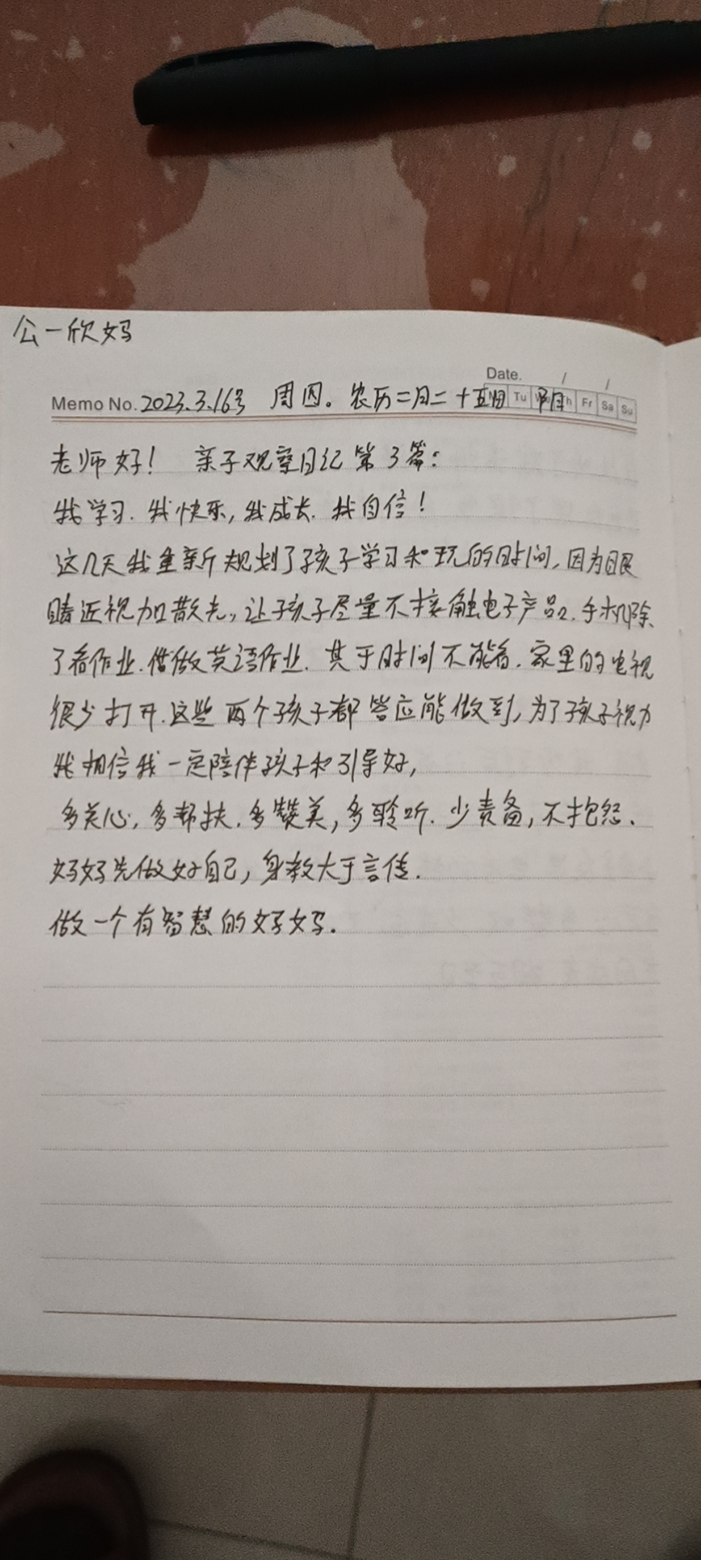 公一欣妈
Date. / /
Memo No. 2023.3.16号 周四。农历二月二十五 阴 Tu Fr Sa Su
老师好! 亲子观察日记第3篇:
我学习.我快乐,我成长.我自信!
这几天我重新规划了孩子学习和玩的时间,因为眼
睛近视加散光,让孩子尽量不接触电子产品.手机除
了看作业.借做英语作业.其于时间不能看.家里的电视
很少打开.这些两个孩子都答应能做到,为了孩子视力
我相信我一定陪伴孩子和引导好,
多关心,多帮扶.多赞美,多聆听.少责备,不抱怨.
好好先做好自己,身教大于言传.
做一个有智慧的好妈.